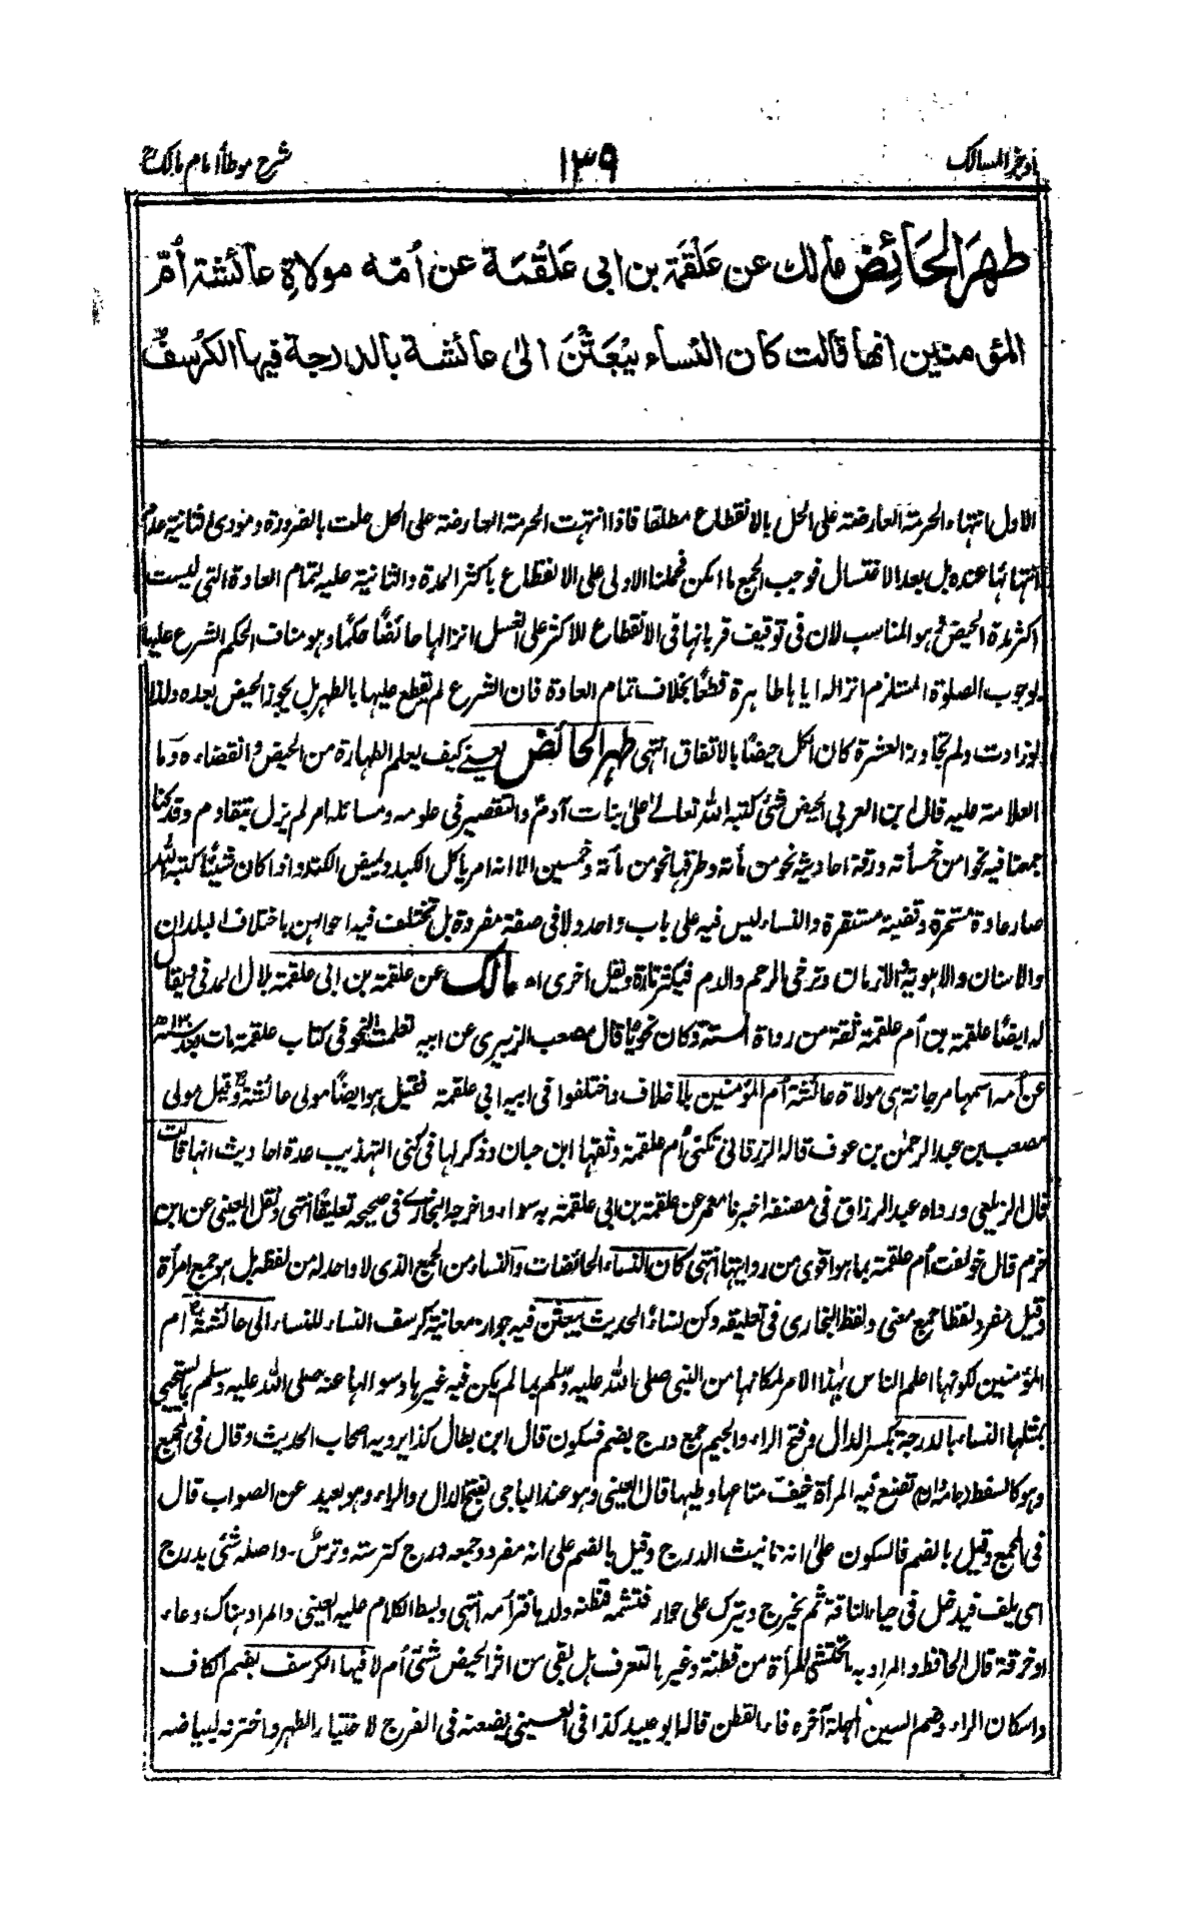 اوجز المسالك
١٣٩
شرح موطأ امام مالك
طهر الحائض مالك عن علقمة بن ابى علقمة عن أمه مولاة عائشة أم
المؤمنين انها قالت كان النساء يبعثن الى عائشة بالدرجة فيها الكرسف
الاول انتهاء الحرمة العارضة على الحل بالانقطاع مطلقا فاذا انتهت الحرمة العارضة على الحل حلت بالضرورة ومؤدى الثانية عدم
انتهائها عنده بل بعد الاغتسال فوجب الجمع ما امكن فحملنا الاولى على الانقطاع باكثر المدة والثانية عليه لتمام العادة التى ليست
اكثر مدة الحيض وهو المناسب لان فى توقيف قربانها فى الانقطاع للاكثر على الغسل انزالها حائضا حكما وهو مناف الحكم الشرع عليها
بوجوب الصلوة المستلزم انزاله اياها طاهرة قطعا بخلاف تمام العادة فان الشرع لم يقطع عليها بالطهر بل يجوز الحيض بعده ولذا
لوزادت ولم تجاوز العشرة كان الكل حيضا بالاتفاق انتهى طهر الحائض يعنى كيف يعلم الطهارة من الحيض وانقضاءه وما
العلامة عليه قال ابن العربى الحيض شئ كتبه الله تعالى على بنات آدم والتقصير فى علومه ومسائله امر لم يزل يتقادم وقد كنا
جمعنا فيه نحوا من خمسأة ورقة احاديثه نحو من مأة وطرقها نحو من مأة وخمسين الا انه امر ياكل الكبد ويبيض الكتد واذا كان شيئا كتبه الله
صار عادة مستمرة وقضية مستقرة والنساء ليس فيه على باب واحد ولا فى صفة مفردة بل تختلف فيه احوالهن باختلاف البلدان
والاسنان والاهوية والازمان وترخى الرحم والدم فيكثر تارة ويقل اخرى اه مالك عن علقمة بن ابى علقمة بلال المدنى ويقال
له ايضا علقمة بن أم علقمة ثقة من رواة الستة وكان نحويا قال مصعب الزبيرى عن ابيه تعلمت النحو فى كتاب علقمة مات بعد سنة ١٣٠ھ
عن أمه اسمها مرجانة هى مولاة عائشة أم المؤمنين بلا خلاف واختلفوا فى ابيه ابى علقمة فقيل هو ايضا مولى عائشة وقيل مولى
مصعب بن عبد الرحمن بن عوف قاله الزرقانى تكنى أم علقمة وثقها ابن حبان وذكر لها فى كنى التهذيب عدة احاديث انها قالت
قال الزيلعى ورواه عبد الرزاق فى مصنفه اخبرنا معمر عن علقمة بن ابى علقمة به سواء واخرجه البخارى فى صحيحه تعليقا انتهى ونقل العينى عن ابن
حزم قال خولفت أم علقمة بما هو اقوى من روايتها انتهى كان النساء الحائضات والنساء من الجمع الذى لا واحد له من لفظه بل هو جمع امرأة
وقيل مفرد لفظا جمع معنى ولفظ البخارى فى تعليقه وكن نساء الحديث يبعثن فيه جواز معاينة كرسف النساء للنساء الى عائشة أم
المؤمنين لكونها اعلم الناس بهذا الامر لمكانها من النبى صلى الله عليه وسلم بما لم يكن فيه غيرها وسوالها عنه صلى الله عليه وسلم بما يستحيى
بمثلها النساء بالدرجة بكسر الدال وفتح الراء والجيم جمع درج بضم فسكون قال ابن بطال كذا يرويه اصحاب الحديث وقال فى المجمع
وهو كالسقط (جامه دان) تضع فيه المرأة خفيف متاعها وطيبها قال العينى وهو عند الباجى بفتح الدال والراء وهو بعيد عن الصواب قال
فى المجمع وقيل بالضم فالسكون على انه تانيث الدرج وقيل بالضم على انه مفرد وجمعه درج كترسة وترس - واصله شئ يدرج
اى يلف فيدخل فى حياء الناقة ثم يخرج ويترك على حوار فتشمه فتظنه ولدها فترأمه انتهى وبسط الكلام عليه العينى والمراد هناك وعاء
او خرقة قال الحافظ والمراد به ما تحتشى المرأة من قطنة وغيرها لتعرف هل بقى من اثر الحيض شئ أم لا فيها الكرسف بضم الكاف
واسكان الراء وضم السين المهملة آخره فاء القطن قاله ابو عبيد كذا فى العينى يضعنه فى الفرج لاختيار الطهر واخترنه لبياضه